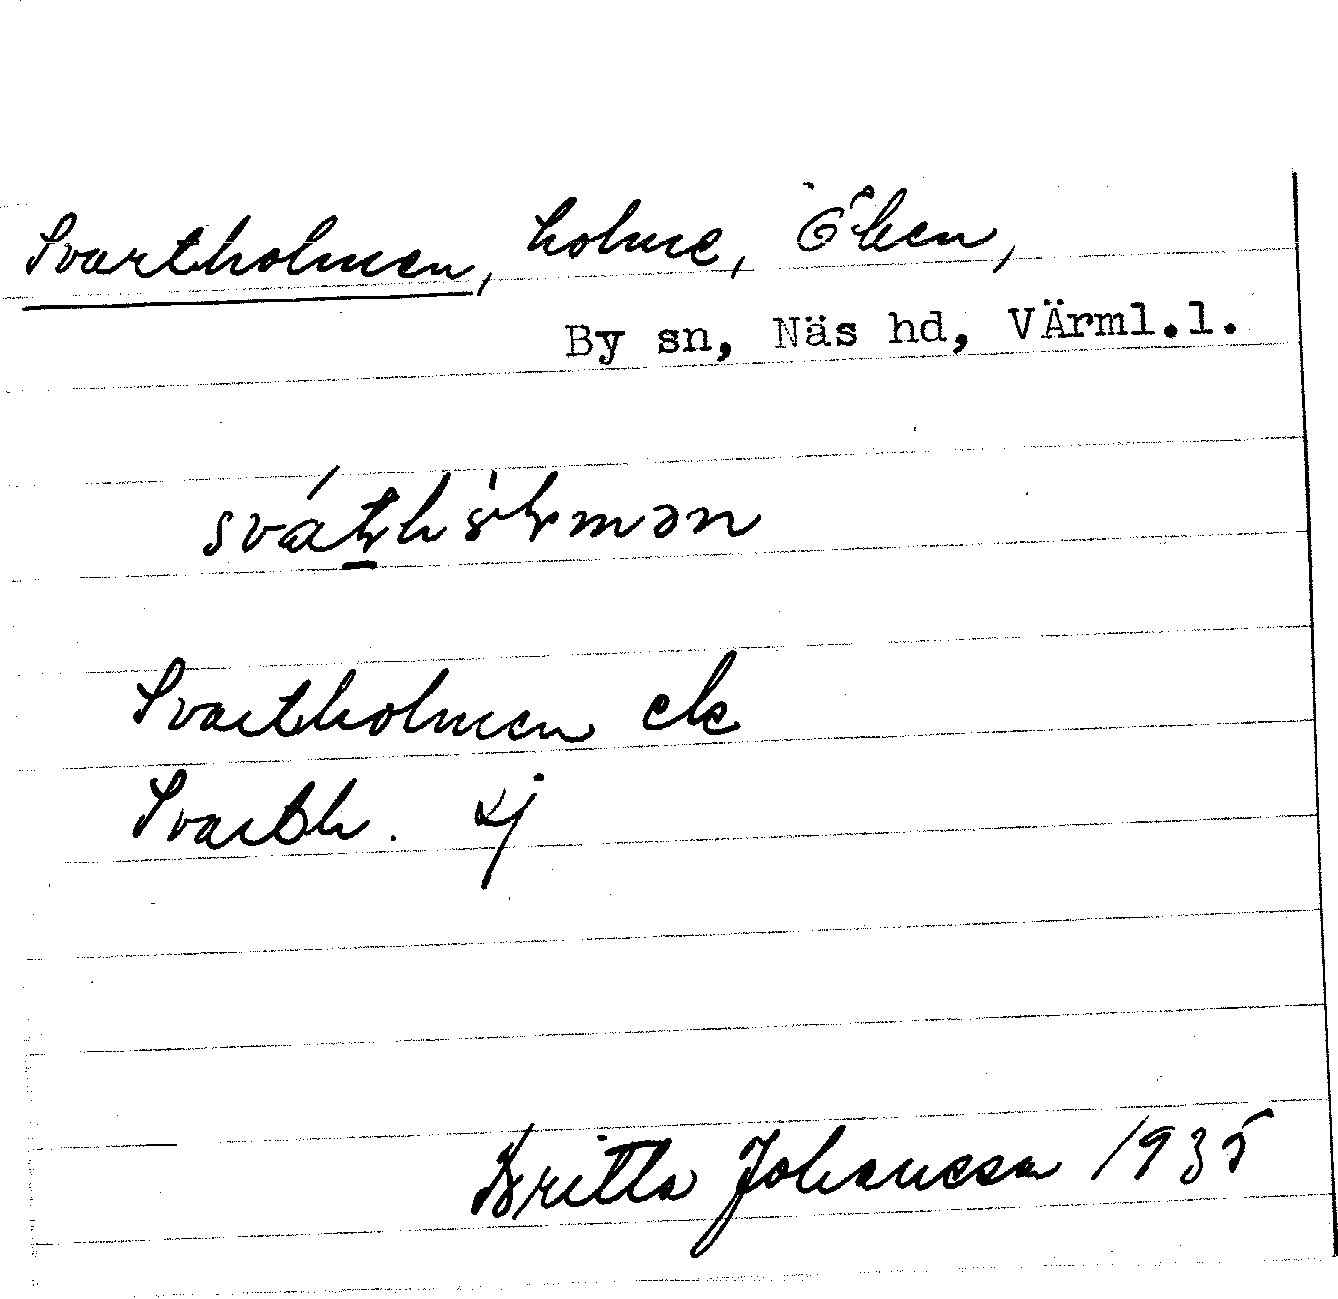 Svartholmen, holme, Ölen,
By sn, Näs hd, VÄrml.l.
Svartholmen ek
Svarth. sj
Britta Johansson 1935